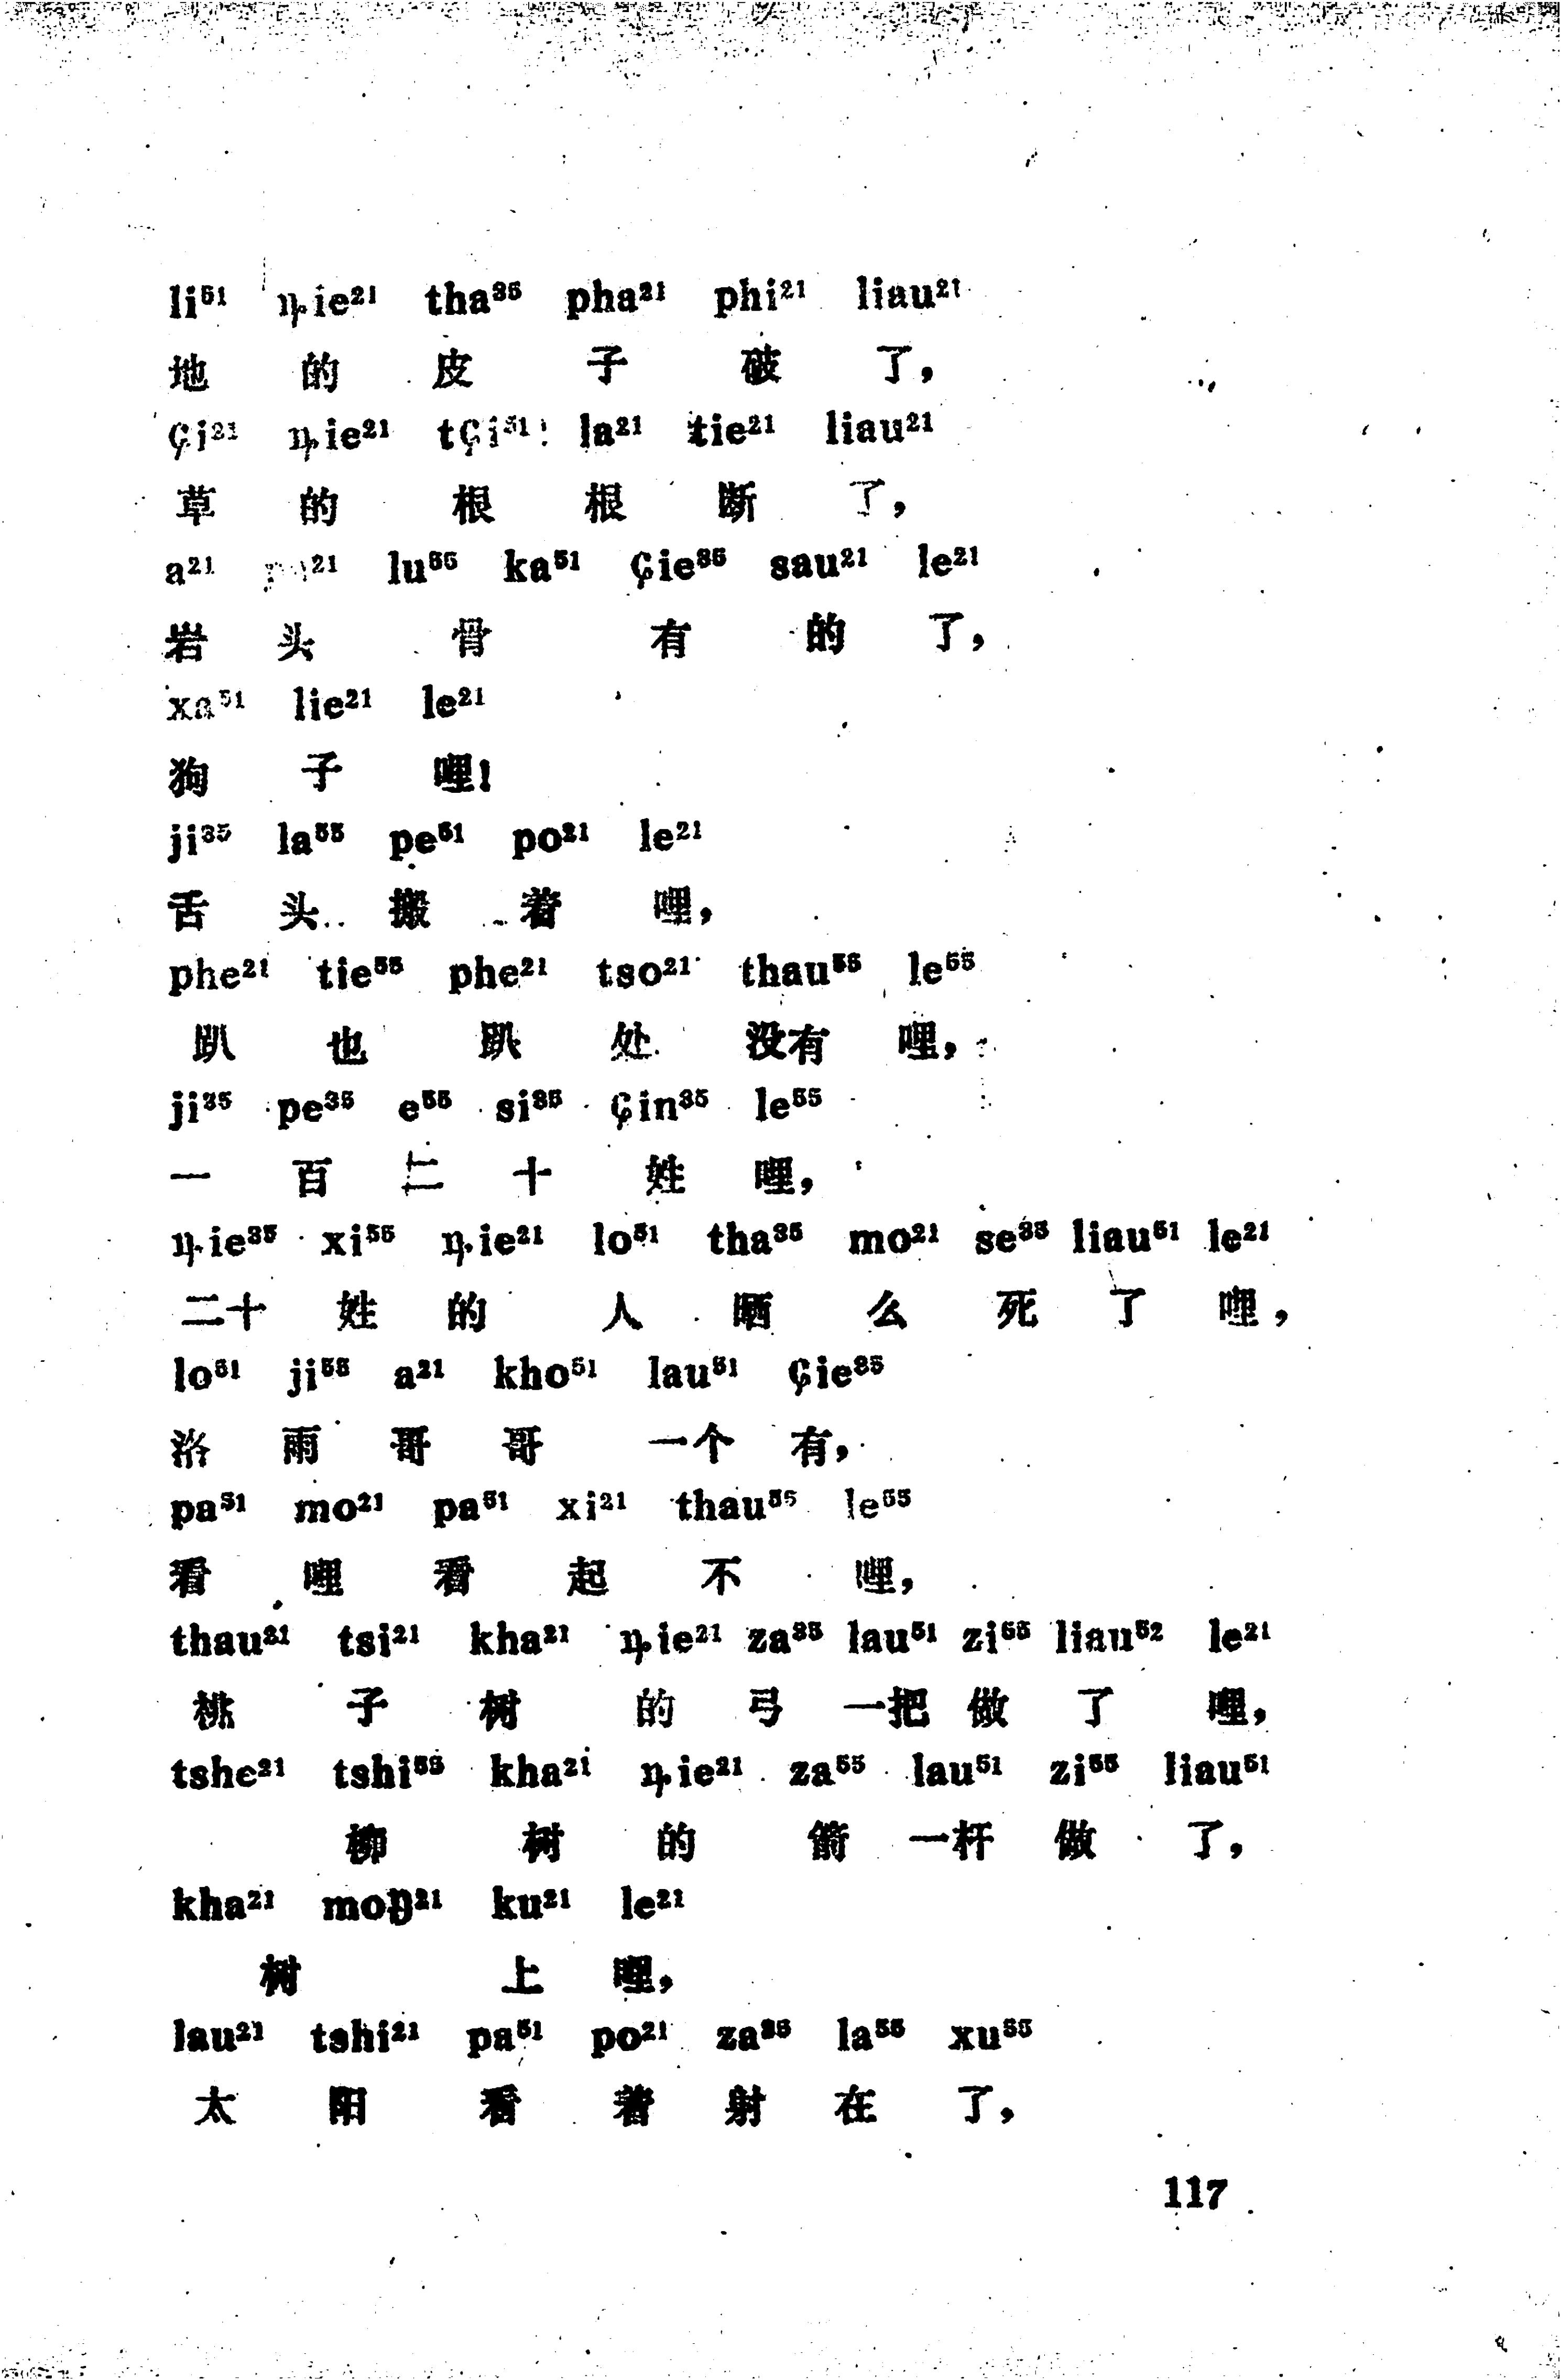 li⁵¹ ȵie²¹ tha³⁵ pha²¹ phi²¹ liau²¹
地 的 皮 子 破 了，
ɕi²¹ ȵie²¹ tɕi⁵¹ la²¹ tie²¹ liau²¹
草 的 根 根 断 了，
a²¹ lu⁵⁵ ka⁵¹ ɕie³⁵ sau²¹ le²¹
岩 头 骨 有 的 了，
xa⁵¹ lie²¹ le²¹
狗 子 哩！
ji³⁵ la⁵⁵ pe⁵¹ po²¹ le²¹
舌 头 搬 着 哩，
phe²¹ tie⁵⁵ phe²¹ tso²¹ thau⁵⁵ le⁵⁵
趴 也 趴 处 没有 哩，
ji³⁵ pe³⁵ e⁵⁵ si³⁵ ɕin³⁵ le⁵⁵
一 百 二 十 姓 哩，
ȵie³⁵ xi⁵⁵ ȵie²¹ lo⁵¹ tha³⁵ mo²¹ se³⁵ liau⁵¹ le²¹
二十 姓 的 人 晒 么 死 了 哩，
lo⁵¹ ji⁵⁵ a²¹ kho⁵¹ lau⁵¹ ɕie³⁵
洛 雨 哥 哥 一个 有，
pa⁵¹ mo²¹ pa⁵¹ xi²¹ thau⁵⁵ le⁵⁵
看 哩 看 起 不 哩，
thau²¹ tsi²¹ kha²¹ ȵie²¹ za³⁵ lau⁵¹ zi⁵⁵ liau⁵² le²¹
桃 子 树 的 弓 一把 做 了 哩，
tshe²¹ tshi⁵⁵ kha²¹ ȵie²¹ za⁵⁵ lau⁵¹ zi⁵⁵ liau⁵¹
柳 树 的 箭 一杆 做 了，
kha²¹ moŋ²¹ ku²¹ le²¹
树 上 哩，
lau²¹ tshi²¹ pa⁵¹ po²¹ za³⁵ la⁵⁵ xu⁵⁵
太 阳 看 着 射 在 了，
117